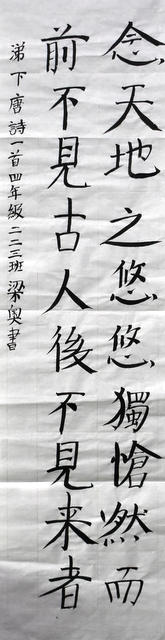 念天地之悠悠獨愴然而
前不見古人後不見来者
涕下唐詩一首四年級二二三班梁奥書